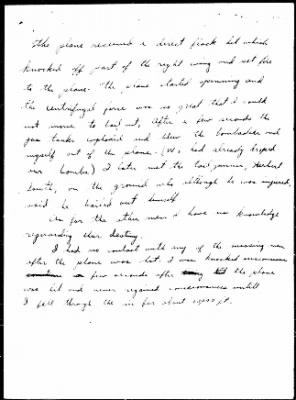 The plane received a direct flack hit which
knocked off part of the right wing and set fire
to the plane. The plane started spinning and
the centrifugal force was so great that I could
not move to bail out. After a few seconds the
gas tanks exploded and blew the bombadier and
myself out of the plane. (We had already droped
our bombs) I later met the tail gunner, Herbert
on the ground who although he was injured,
said he bailed out himself
As for the other men I have no knowledge
regarding their destiny.
I had no contact with any of the missing men
after the plane was hit. I was knocked unconscious
a few seconds after the plane
was hit and never regained consciousness untill
I fell through the air for about ft.